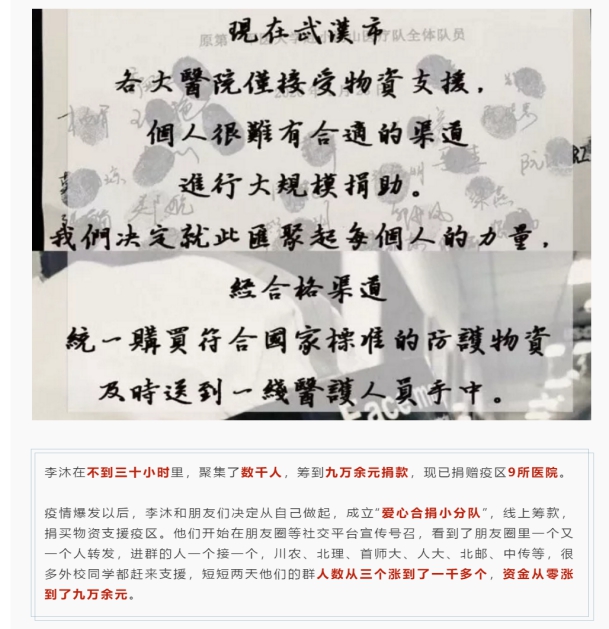 現在武漢市
各大醫院僅接受物資支援，
個人很難有合適的渠道
進行大規模捐助。
我們决定就此匯聚起每個人的力量，
經合格渠道
統一購買符合國家標准的防護物資
及時送到一綫醫護人員手中。
李沐在不到三十小时里，聚集了数千人，筹到九万余元捐款，现已捐赠疫区9所医院。
疫情爆发以后，李沐和朋友们决定从自己做起，成立“爱心合捐小分队”，线上筹款，
捐买物资支援疫区。他们开始在朋友圈等社交平台宣传号召，看到了朋友圈里一个又
一个人转发，进群的人一个接一个，川农、北理、首师大、人大、北邮、中传等，很
多外校同学都赶来支援，短短两天他们的群人数从三个涨到了一千多个，资金从零涨
到了九万余元。